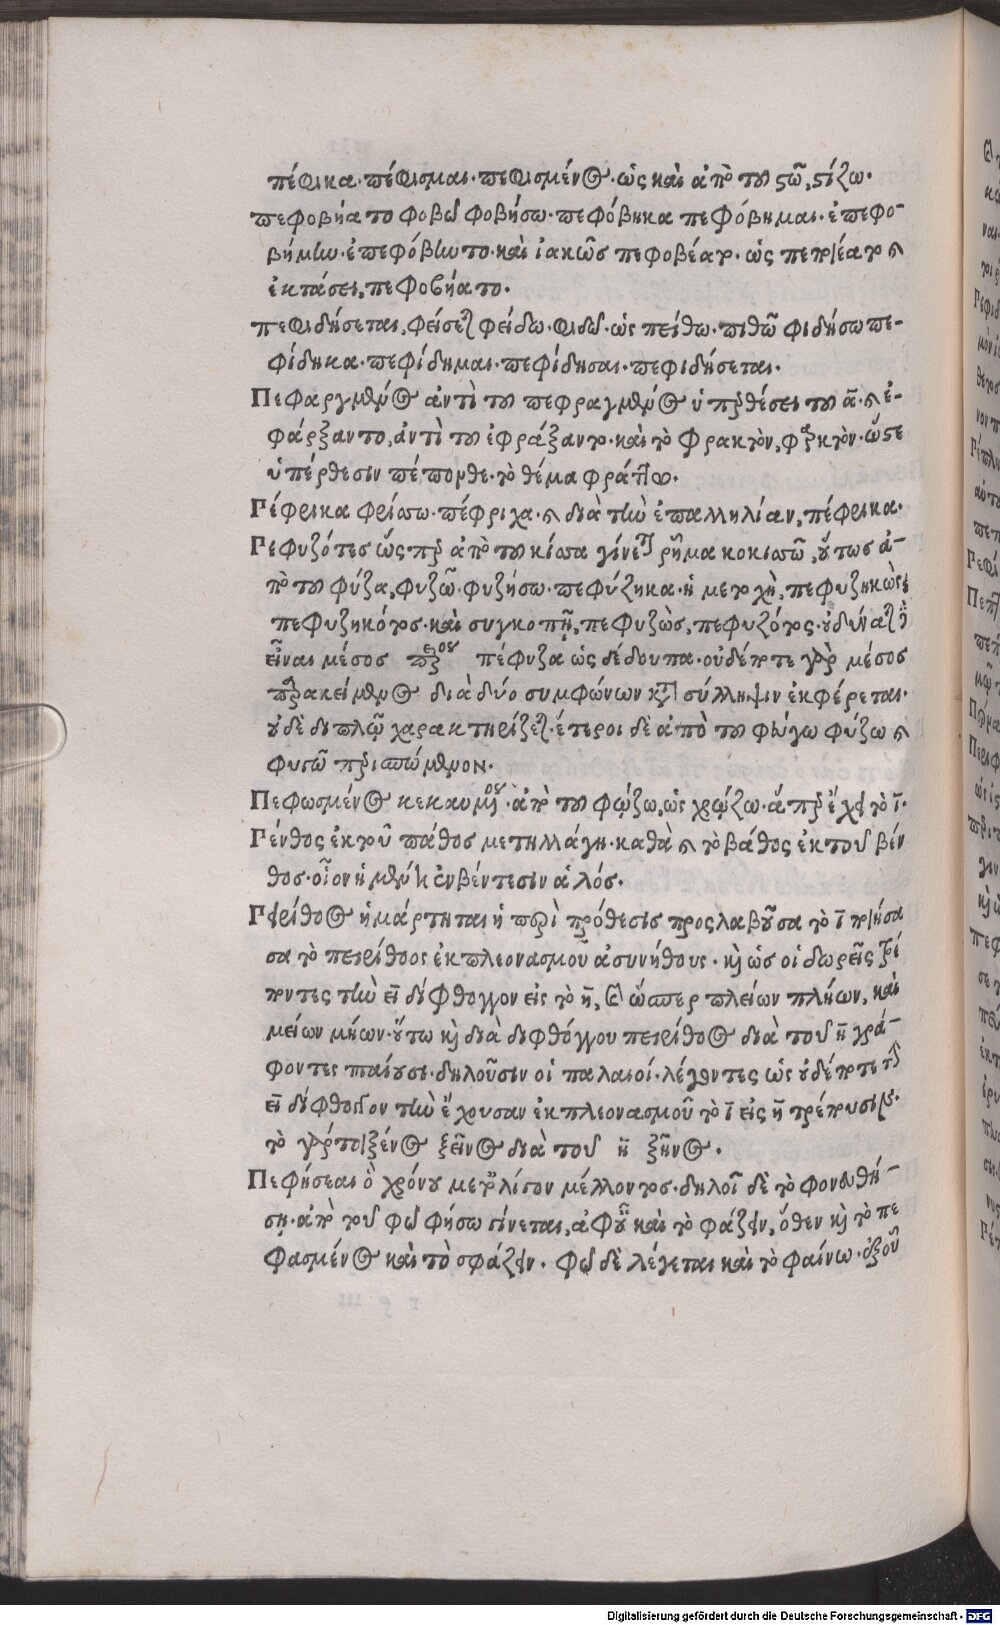 πέφικα· πέφισμαι· πεφισμένος· ὡς καὶ ἀπὸ τοῦ στῶ, στίζω·
πεφοβήατο φοβῶ φοβήσω· πεφόβηκα πεφόβημαι· ἐπεφο-
βήμην· ἐπεφόβηντο· καὶ ἰακῶς πεφοβέατο· ὡς
ἐκτάσει, πεφοβήατο·
πεφιδήσεται, φείσεται φείδω· φιδῶ· ὡς πείθω· πιθῶ φιδήσω πε-
φίδηκα· πεφίδημαι· πεφίδησαι· πεφιδήσεται·
Πεφαργμένος ἀντὶ τοῦ πεφραγμένος ὑπερθέσει τοῦ α̅· καὶ ἐ-
φάρξαντο, ἀντὶ τοῦ ἐφράξαντο· καὶ τὸ φρακτὸν, φαρκτὸν· ὥστε
ὑπέρθεσιν πέπονθε· τὸ θέμα φράττω·
Πέφρικα φρίσσω· πέφριχα· καὶ διὰ τὴν ἐπαλληλίαν, πέφρικα·
Πεφυζότες ὥσπερ ἀπὸ τοῦ κίσσα γίνεται ῥῆμα κοκισσῶ, οὕτως ἀ-
πὸ τοῦ φύζα, φυζῶ· φυζήσω· πεφύζηκα· ἡ μετοχὴ, πεφυζηκὼς
πεφυζηκότος· καὶ συγκοπῇ, πεφυζὼς, πεφυζότος· οὐ δύναται δὲ
εἶναι μέσος πέφυζα ὡς δέδουπα· οὐδέποτε γὰρ μέσος
παρακείμενος διὰ δύο συμφώνων κατὰ σύλληψιν ἐκφέρεται·
οὐδὲ διπλῷ χαρακτηρίζεται· ἕτεροι δὲ ἀπὸ τοῦ φεύγω φύζω καὶ
φυσῶ περισπώμενον·
Πεφωσμένος κεκαυμένου· ἀπὸ τοῦ φῴζω, ὡς χρῴζω· ἅπερ ἔχει τὸ ι̅·
Πένθος ἐκ τοῦ πάθος μετηλλάγη· καθὰ καὶ τὸ βάθος ἐκ τοῦ βέν
θος· οἷον ἡμένη ἐν βέντεσιν ἁλός·
Πειρίθος ἡμάρτηται ἡ περὶ πρόθεσις προσλαβοῦσα τὸ ι̅ ποιήσα
σα τὸ πειρίθοος ἐκ πλεονασμοῦ ἀσυνήθους· καὶ ὡς οἱ δωρεῖς τρέ
ποντες τὴν ει̅ δίφθογγον εἰς τὸ η̅, ὥσπερ πλείων πλήων, καὶ
μείων μήων· οὕτω καὶ διὰ διφθόγγου πειρίθος διὰ τοῦ η̅ γρά-
φοντες πταίουσι· δηλοῦσιν οἱ παλαιοί· λέγοντες ὡς οὐδέποτε τὴν
ει̅ δίφθογγον τὴν ἔχουσαν ἐκ πλεονασμοῦ τὸ ι̅ εἰς η̅ τρέπουσι
τὸ γὰρ τοι ξένος ξεῖνος διὰ τοῦ η̅ ξῆνος·
Πεφήσεαι ὁ χρόνου μετ' ὀλίγον μέλλοντος· δηλοῖ δὲ τὸ φονευθή-
σῃ· ἀπὸ τοῦ φῶ φήσω γίνεται, ἀφ' οὗ καὶ τὸ φάζειν, ὅθεν καὶ τὸ πε
φασμένος καὶ τὸ σφάζειν· φῶ δὲ λέγεται καὶ τὸ φαίνω· ἐξ οὗ
Digitalisierung gefördert durch die Deutsche Forschungsgemeinschaft - DFG